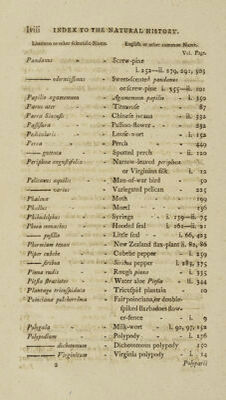 lviii INDEX TO THE NATURAL HISTORY.
Linnæan or other scientific Name. English or other common Name.
Vol. Page.
Pandanus - Screw-pine
i. 252—ii. 279, 291, 303
—— odoratissimus Sweet-scented pandanus
or screw-pine i. 355—ii. 101
Papilio agamemnon - Agamemnon papilio - i. 350
Parus ater - Titmouse - 87
Parra sinensis - Chinese jacana - ii. 332
Passiflora - Passion-flower - - 252
Pedicularis - Louse-wort - i. 152
Perca - Perch - 449
—— guttata - Spotted perch - ii. 120
Periploca angustifolia - Narrow-leaved periploca
or Virginian silk i. 12
Pelicanus aquilus - Man-of-war bird - 50
—— varius - Variegated pelican - 225
Phalæna - Moth - 169
Phallus - Morel - 196
Philadelphus - Syringa - i. 139—ii. 75
Phoca monachus - Hooded seal i. 162—ii. 21
—— pusilla - Little seal - i. 66, 403
Phormium tenax - New Zealand flax-plant ii. 82, 86
Piper cubebe - Cubebe pepper - i. 259
—— siriboa - Siriboa pepper i. 285, 375
Pinna rudis - Rough pinna - i. 335
Pistia stratiotes - Water aloe Pistia - ii. 344
Plantago tricuspidata - Tricuspid plantain - 10
Poinciana pulcherrima - Fair poinciana, or double-
spiked Barbadoes flow-
er-fence - i. 9
Polygala - Milk-wort - i. 92, 97, 152
Polypodium - Polypody - - i. 156
—— dichotomum - Dichotomous polypody 150
—— Virginicum - Virginia polypody - i. 14
2 Polyparii